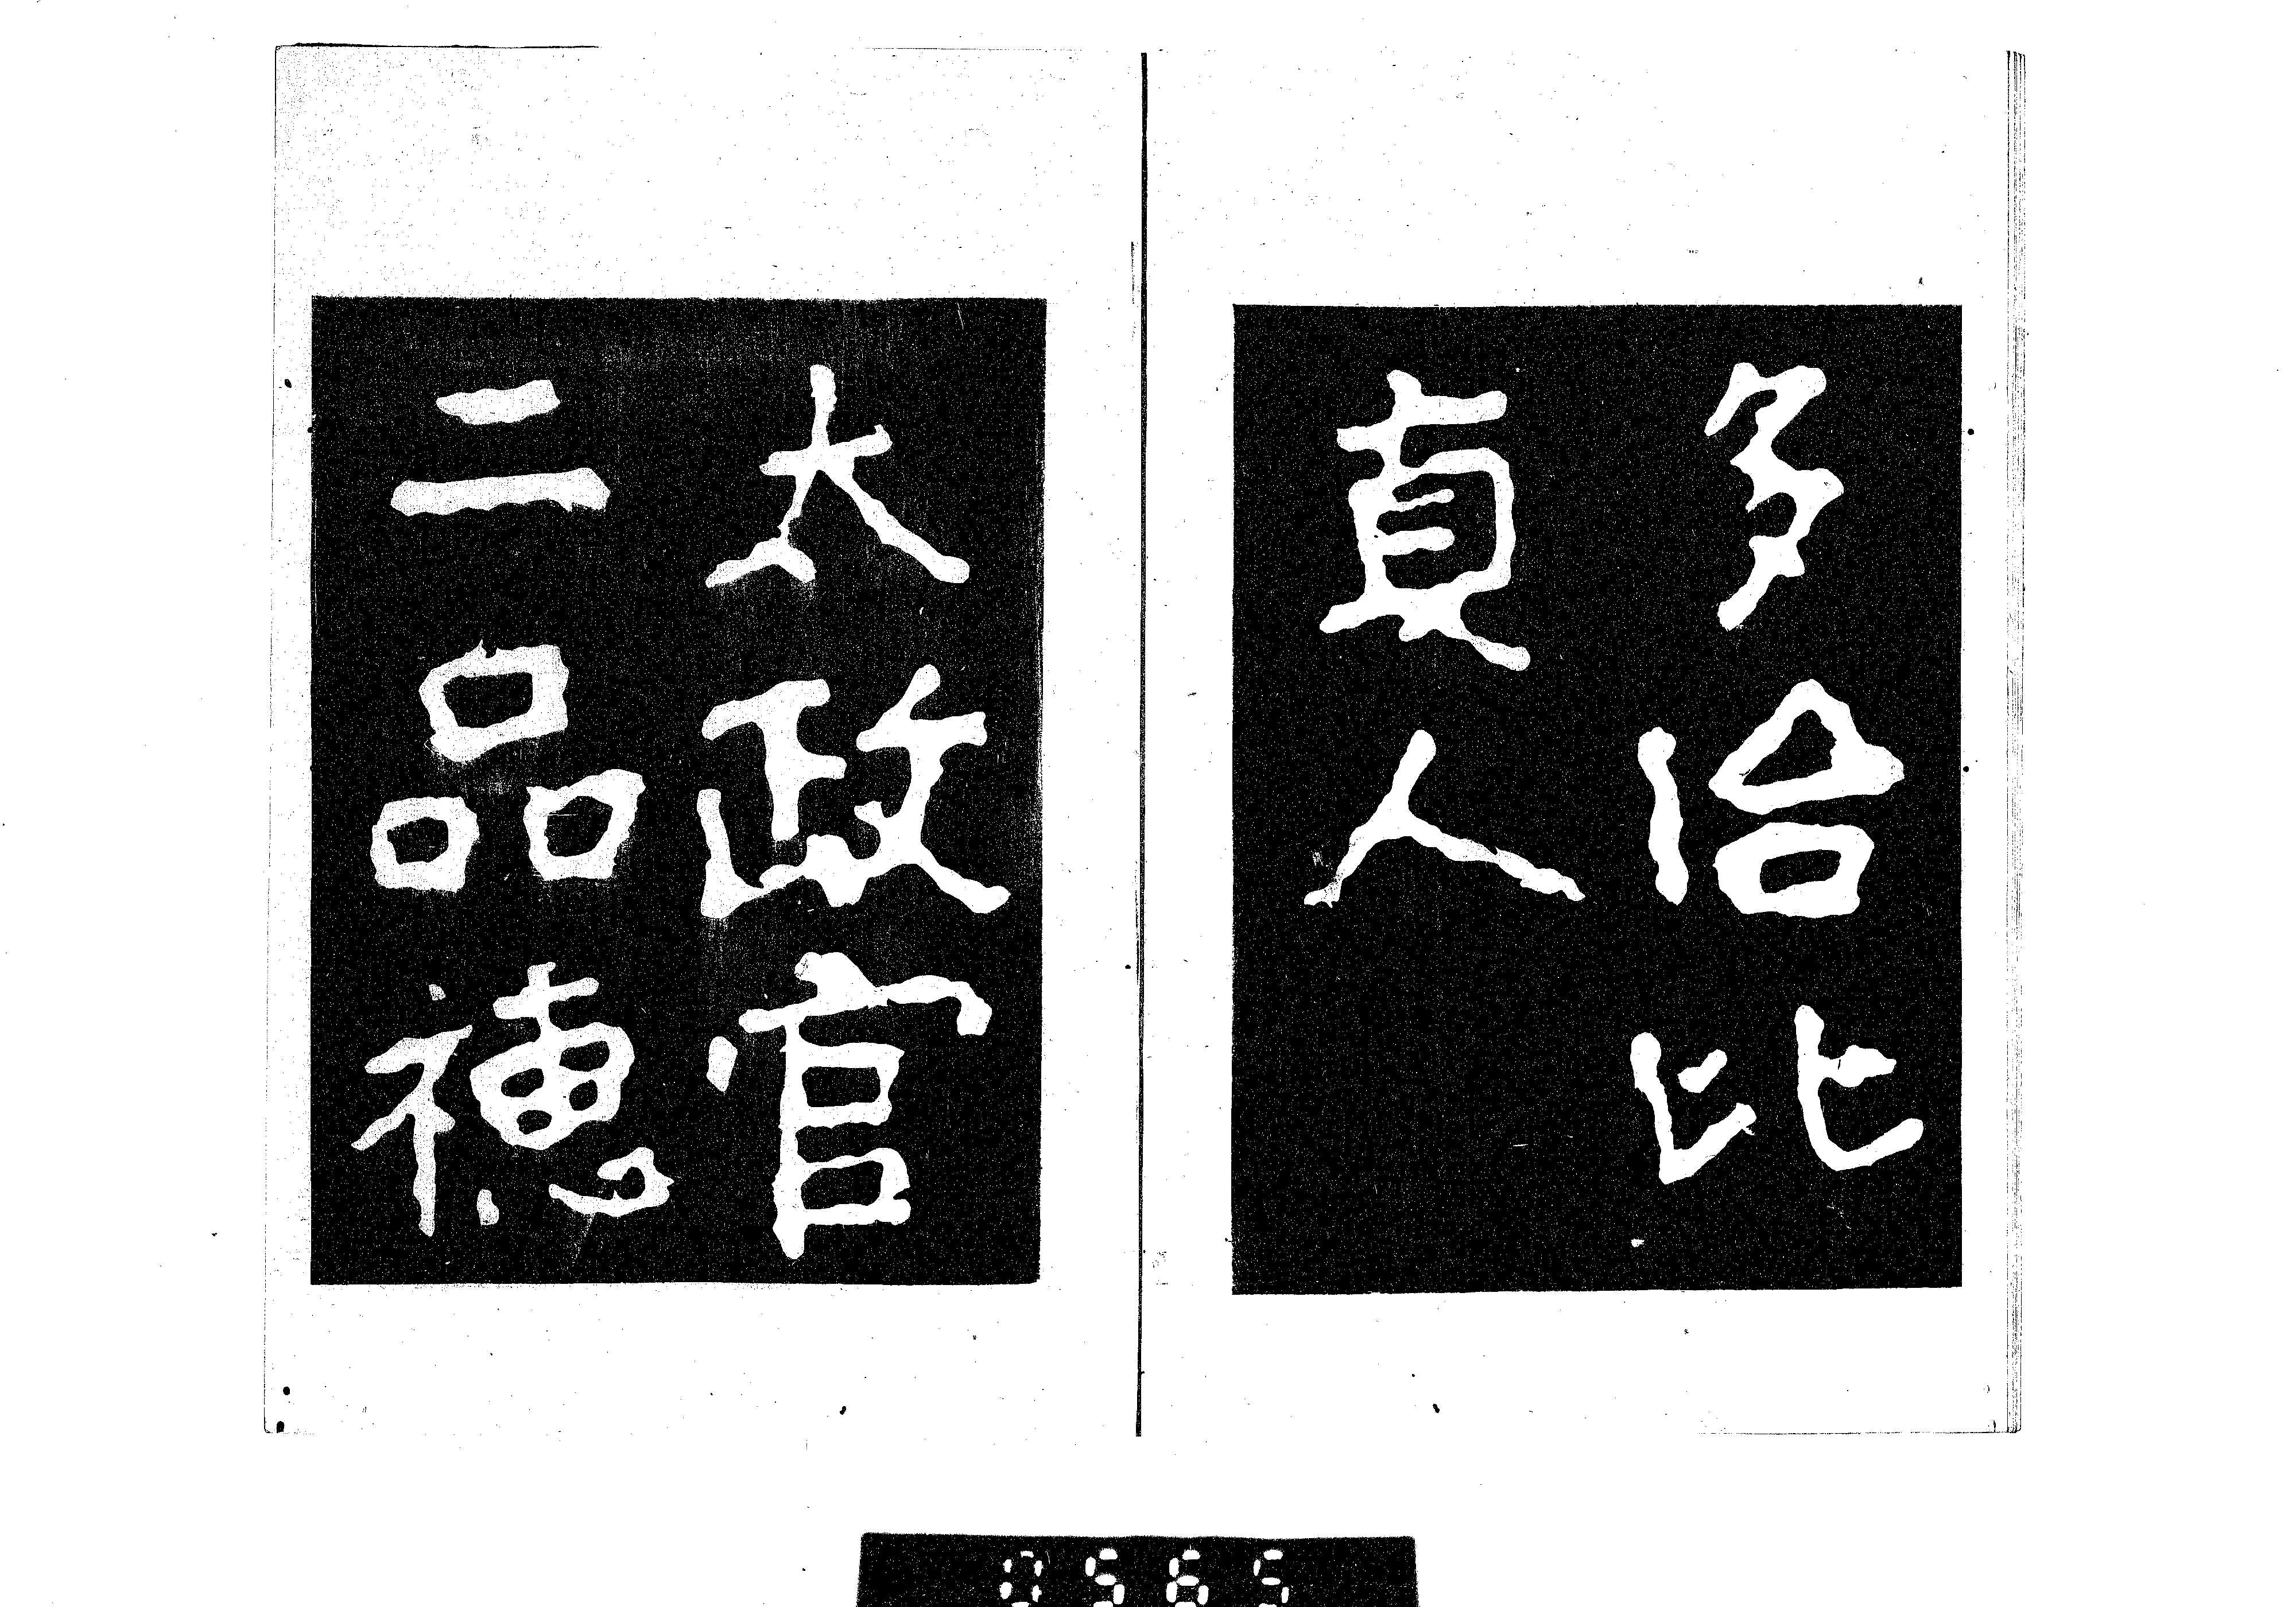 多治比
真人
太政官
二品穂
0565